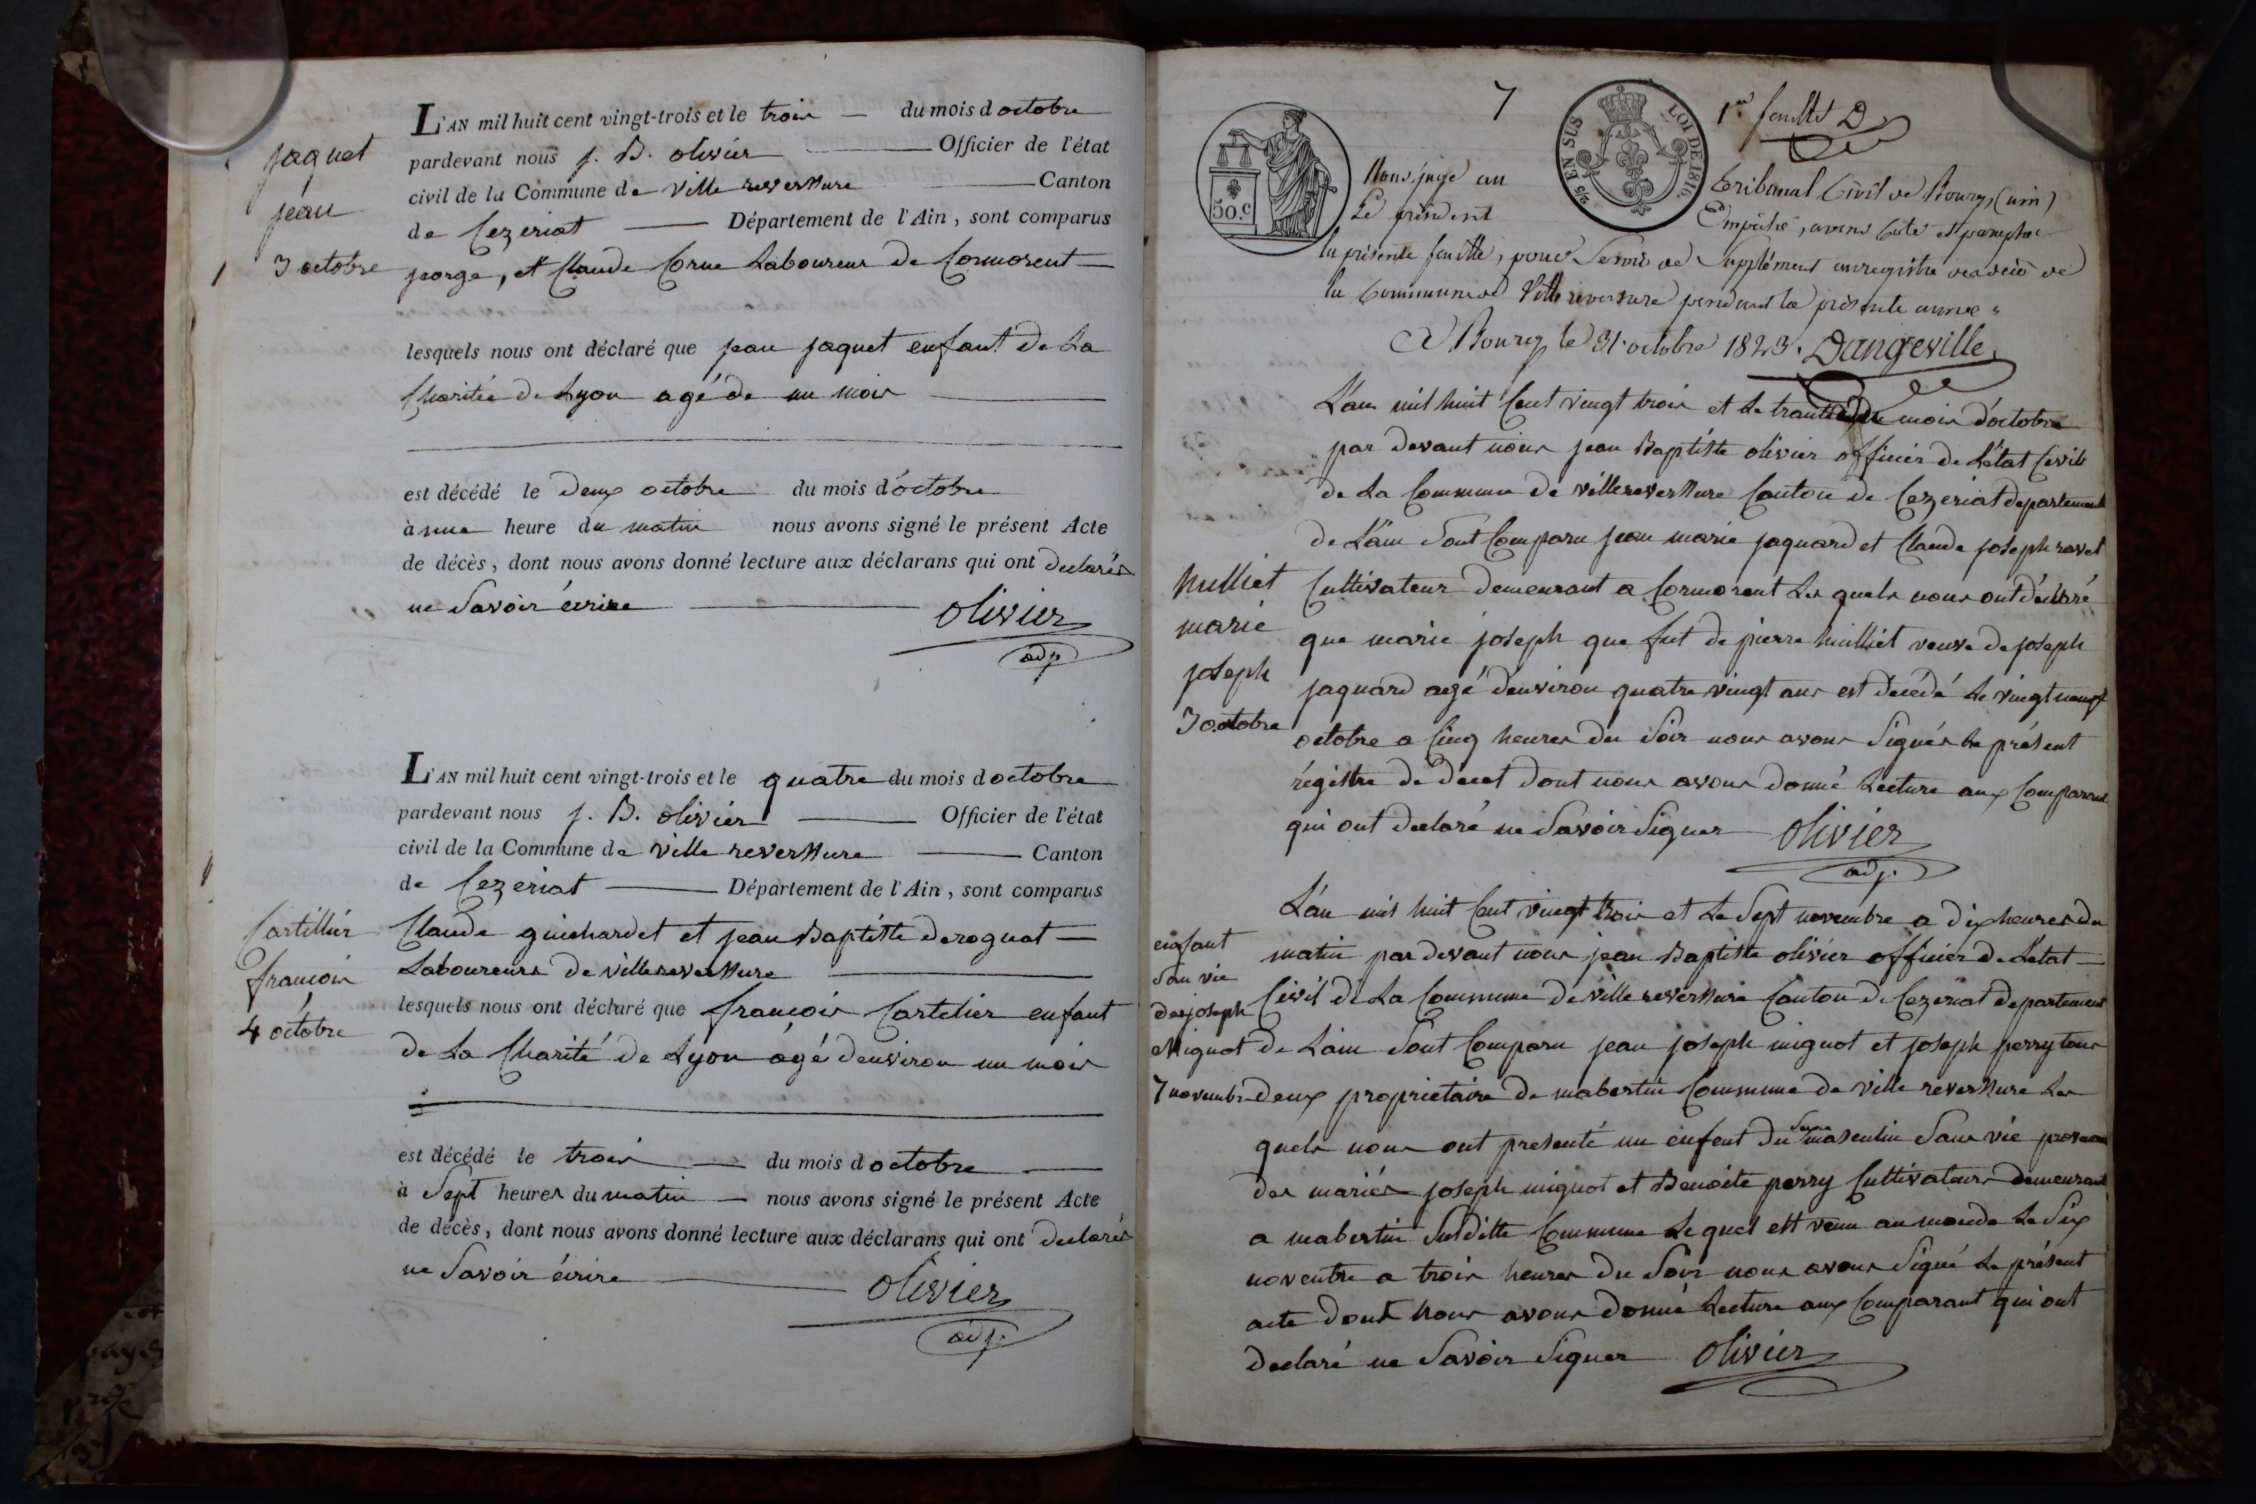 L'AN mil huit cent vingt-trois et le trois du mois d octobre
pardevant nous j. B. olivier Officier de l'état
civil de la Commune de ville reversure Canton
de Cezeriat Département de l'Ain, sont comparus
jaquet
jean
3 octobre
george, et Claude Corne Laboureur de Cormorent
lesquels nous ont déclaré que jean jaquet enfant de La
Charitée de Lyon agé de un mois
est décédé le deux octobre du mois d'octobre
à une heure du matin nous avons signé le présent Acte
de décès, dont nous avons donné lecture aux déclarans qui ont declarés
ne Savoir écrire
olivier
adj.
L'AN mil huit cent vingt-trois et le quatre du mois d octobre
pardevant nous j. B. olivier Officier de l'état
civil de la Commune de ville reversure Canton
de Cezeriat Département de l'Ain, sont comparus
Cartillier
françois
4 octobre
Claude guichardet et jean Baptiste derognat
Laboureurs de villereversure
lesquels nous ont déclaré que françois Cartelier enfant
de La Charité de Lyon agé denviron un mois
est décédé le trois du mois d octobre
à Sept heures du matin nous avons signé le présent Acte
de décès, dont nous avons donné lecture aux déclarans qui ont declarés
ne Savoir écrire
olivier
adj.
7
50.C
25 EN SUS
LOI DE 1816.
1re feuille D
Nous juge au Tribunal Civil de Bourg (ain)
Le président Empêché, avons Coté et paraphé
la présente feuille, pour Servir de Supplément au registre de décès de
la Commune de Villereversure pendant la présente année
A Bourg le 31 octobre 1823. Dangeville
L'an mil huit Cent vingt trois et Le trante du mois d'octobre
par devant nous jean Baptiste olivier officier de L'état Civil
de La Commune de villereversure Canton de Cezeriat departement
de L'ain Sont Comparu jean marie jaquard et Claude joseph ravet
hulliet
marie
joseph
30octobre
Cultivateur demeurant a Cormorent Les quels nous ont déclaré
que marie joseph que fut de pierre hulliet veuve de joseph
jaquard agé denviron quatre vingt ans est décédé Le vingt neuf
octobre a Cinq heures du Soir nous avons Signés Le présent
régistre de decet dont nous avons donné Lecture aux Comparant
qui ont declaré ne Savoir Signer olivier
adj.
L'an mil huit Cent vingt trois et Le Sept novembre a dix heures du
matin par devant nous jean Baptiste olivier officier de L'état
enfant
San vie
de joseph
Mignot
7 novembre
Civil de La Commune de ville reversure Canton de Cezeriat departement
de Lain Sont Comparu jean joseph mignot et joseph perry tous
deux proprietaire de mabertin Commune de ville reversure Les
quels nous ont presenté un enfent du Sexe masculin Sans vie
des mariés joseph mignot et Benoite perry Cultivateurs demeurant
a mabertin Susditte Commune Le quel est venu au monde Le Six
noventre a trois heures du Soir nous avons Signé Le présent
acte dont nous avons donné Lecture aux Comparant qui ont
declaré ne Savoir Signer olivier